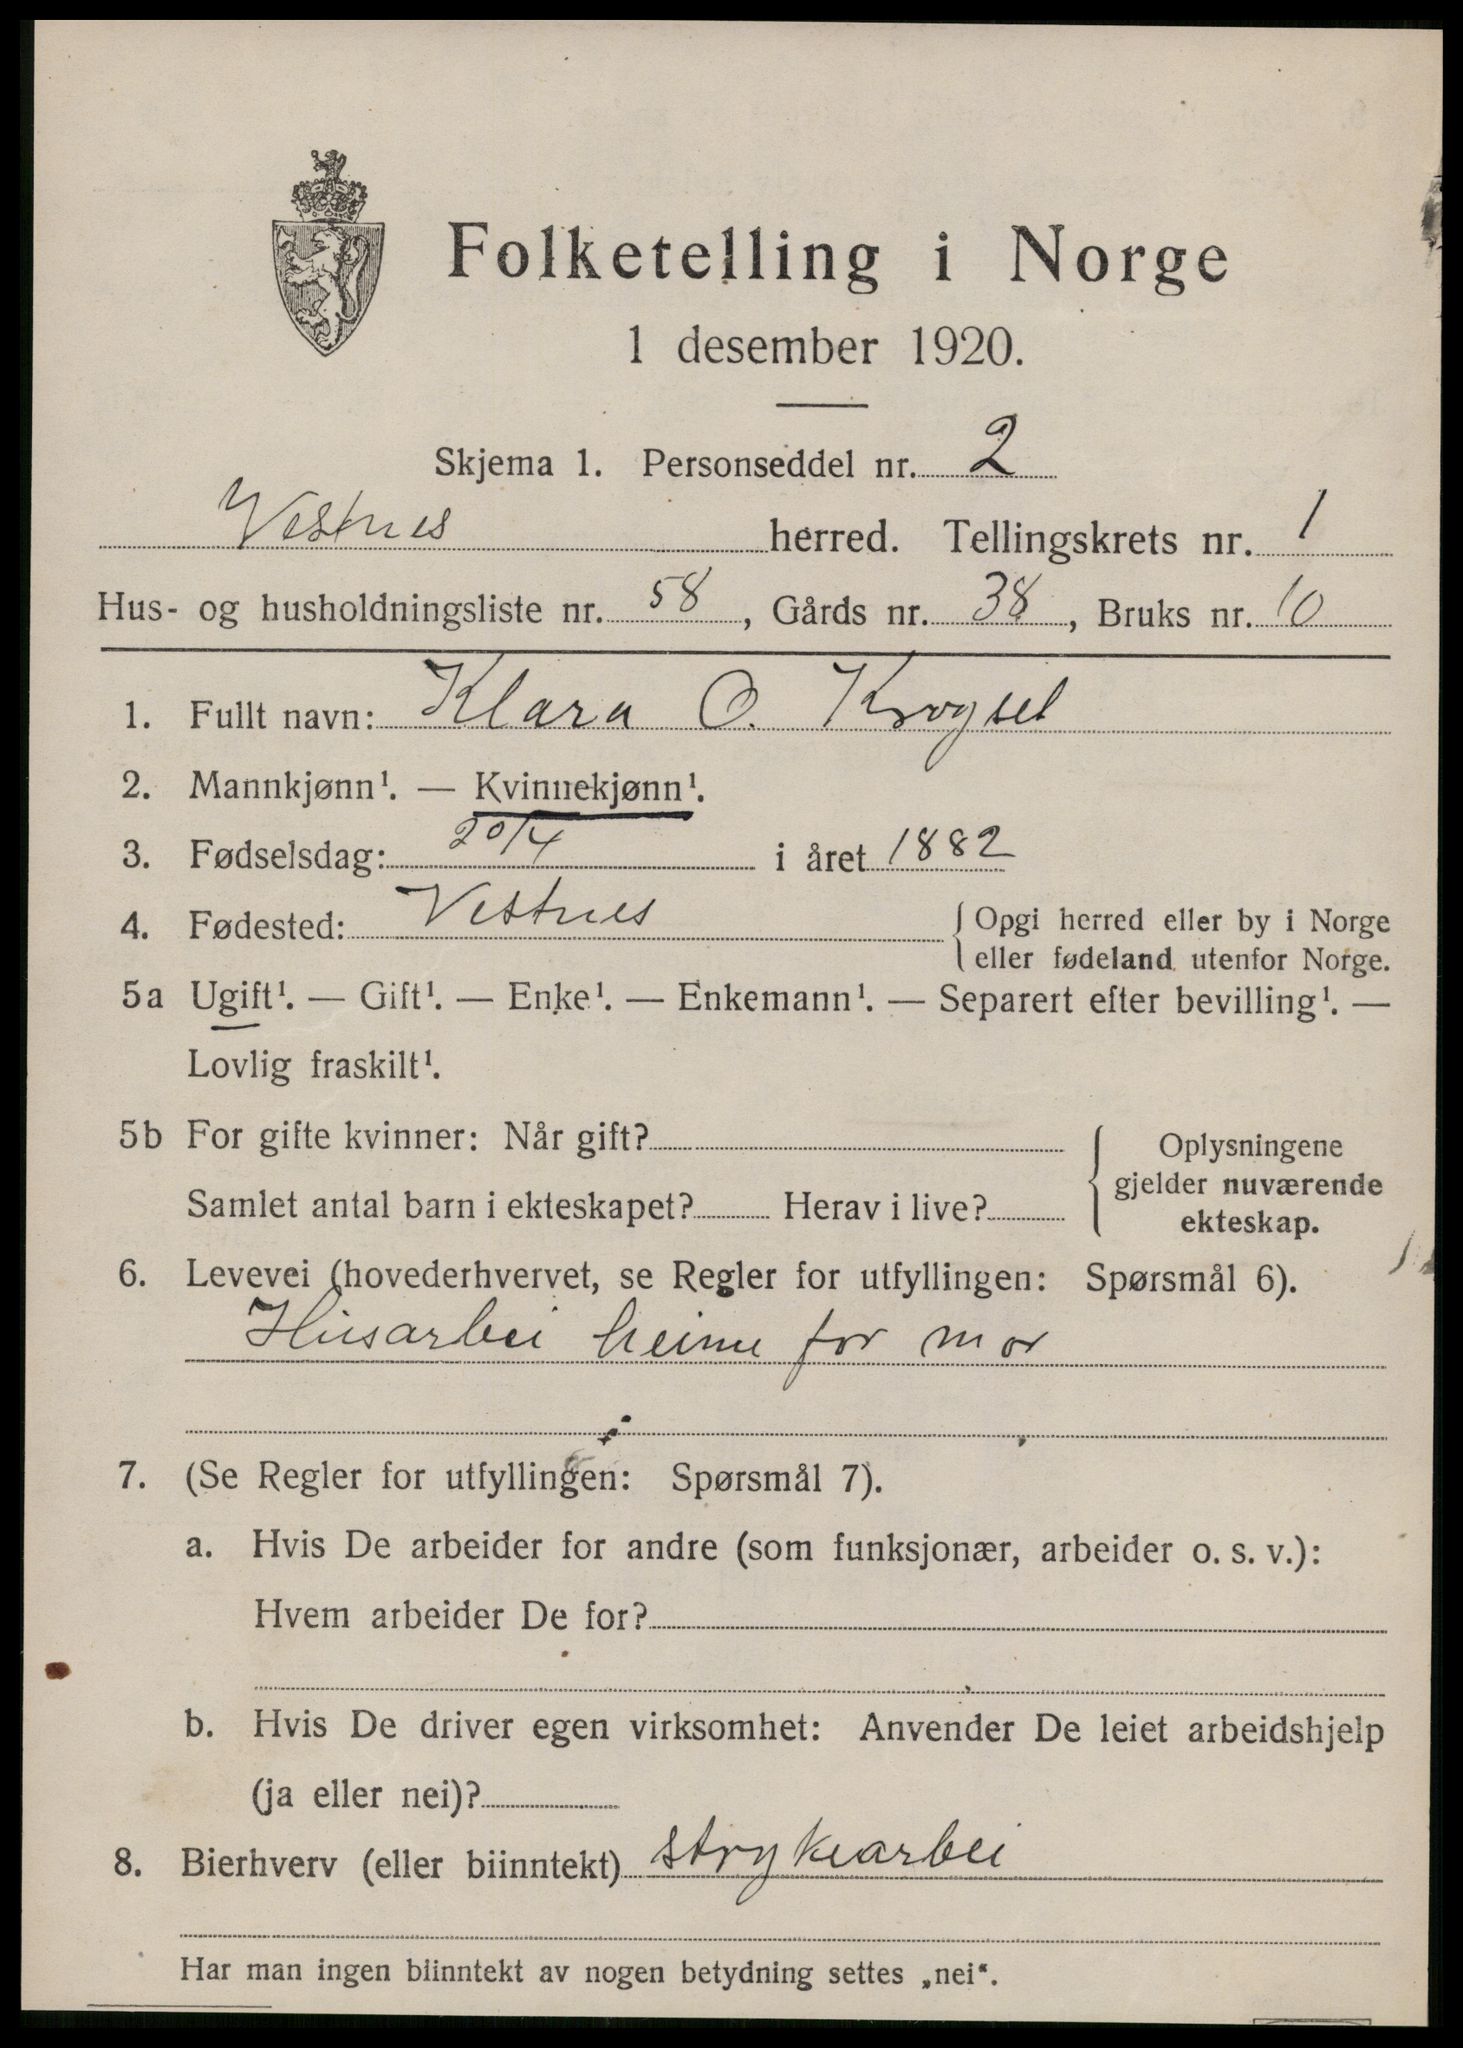 Folketelling i Norge
1 desember 1920.
Skjema 1. Personseddel nr. 2
Vestnes herred. Tellingskrets nr. 1
Hus- og husholdningsliste nr. 58, Gårds nr. 38, Bruks nr. 10
1. Fullt navn: Klara O. Krogset
2. Mannkjønn¹. — Kvinnekjønn¹.
3. Fødselsdag: 20/4 i året 1882
4. Fødested: Vestnes { Opgi herred eller by i Norge
eller fødeland utenfor Norge.
5a Ugift¹. — Gift¹. — Enke¹. — Enkemann¹. — Separert efter bevilling¹. —
Lovlig fraskilt¹.
5b For gifte kvinner: Når gift?
Samlet antal barn i ekteskapet? Herav i live?
Oplysningene
gjelder nuværende
ekteskap.
6. Levevei (hovederhvervet, se Regler for utfyllingen: Spørsmål 6).
Husarbei heime for mor
7. (Se Regler for utfyllingen: Spørsmål 7).
a. Hvis De arbeider for andre (som funksjonær, arbeider o. s. v.):
Hvem arbeider De for?
b. Hvis De driver egen virksomhet: Anvender De leiet arbeidshjelp
(ja eller nei)?
8. Bierhverv (eller biinntekt) strykearbei
Har man ingen biinntekt av nogen betydning settes „nei“.